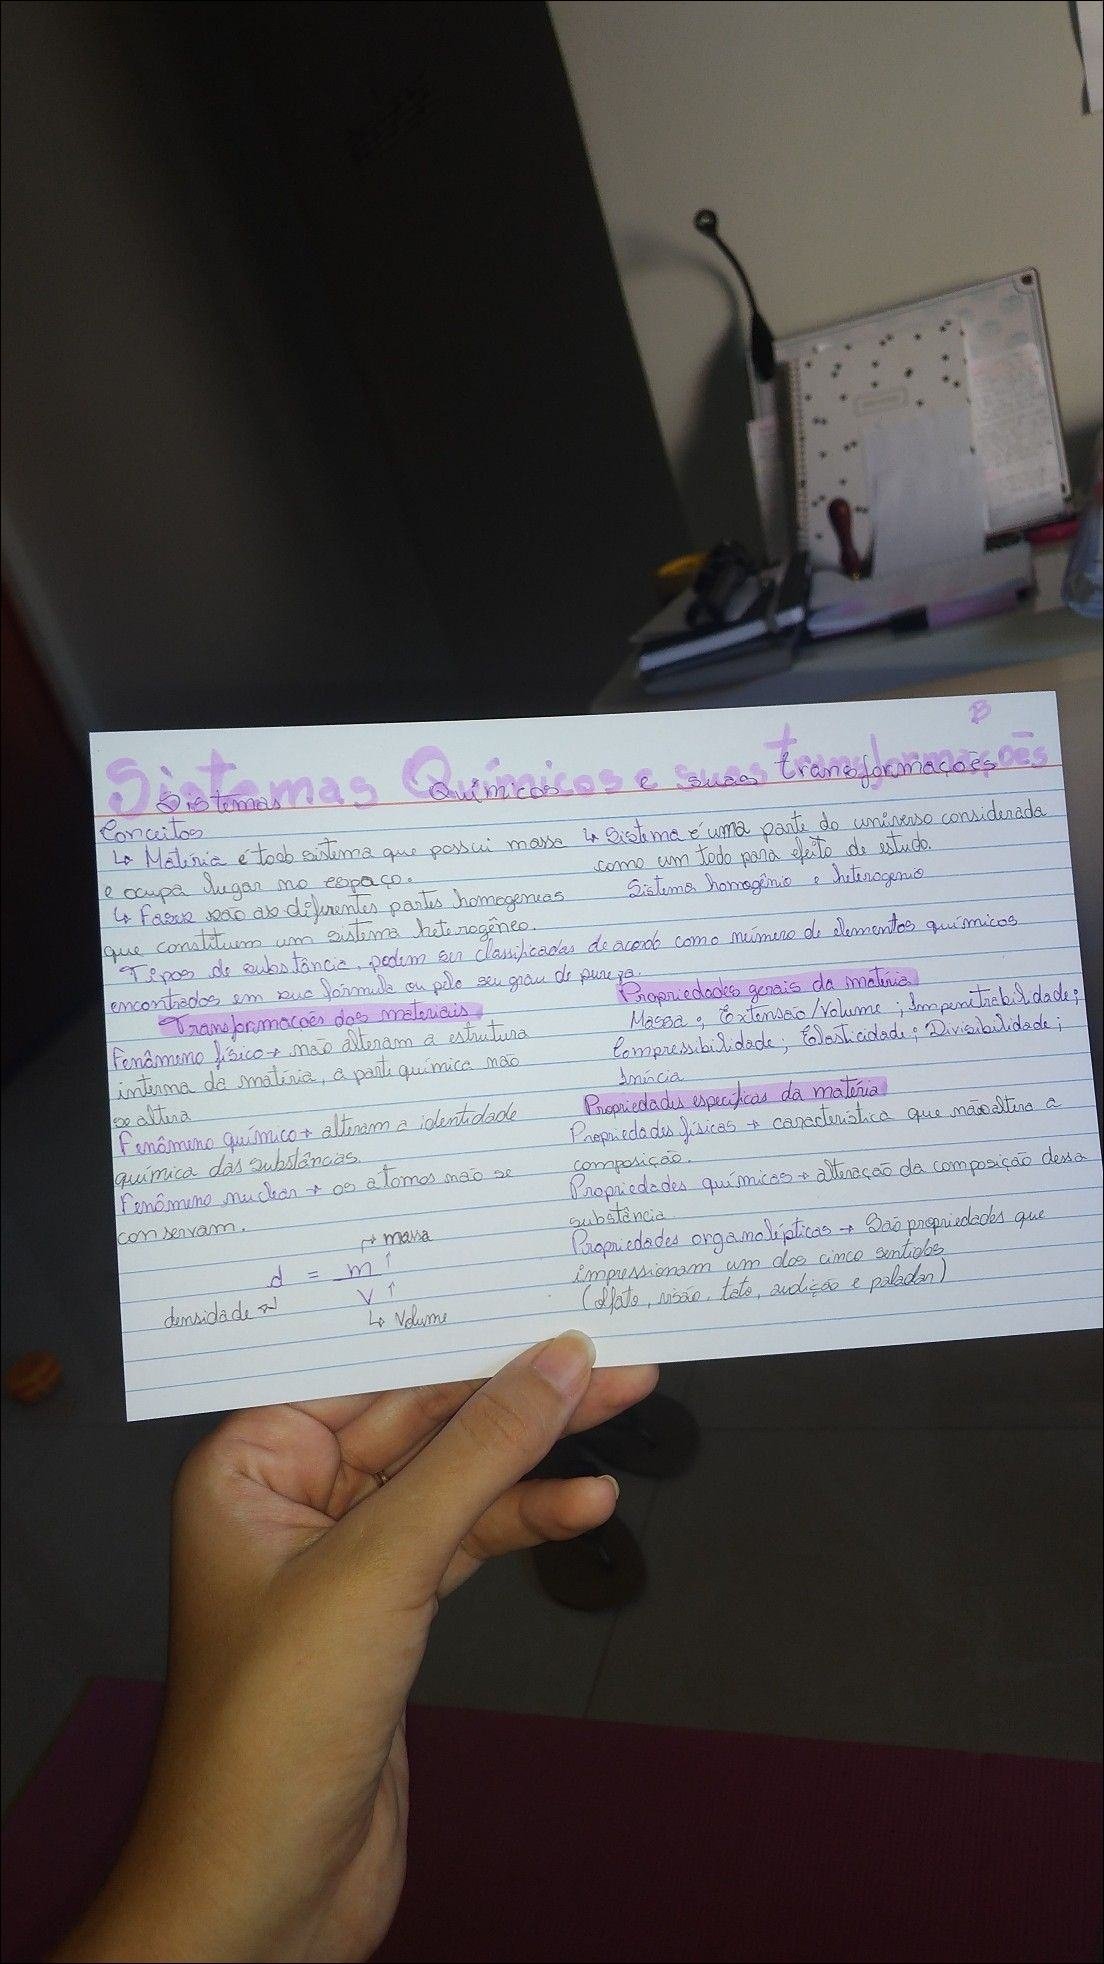 B
Sistemas Químicos e suas transformações
Sistemas Químicos e suas transformações
Conceitos
↳ Matéria é todo sistema que possui massa
e ocupa lugar no espaço.
↳ Fases são as diferentes partes homogêneas
que constituem um sistema heterogêneo.
↳ Sistema é uma parte do universo considerada
como um todo para efeito de estudo.
Sistema homogênio e heterogenio
Tipos de substância, podem ser classificadas de acordo como número de elementos químicos
encontrados em sua fórmula ou pelo seu grau de pureza.
Transformações dos materiais
Fenômeno físico → não alteram a estrutura
interna da matéria, a parte química não
se altera
Fenômeno químico → alteram a identidade
química das substâncias.
Fenômeno nuclear → os átomos não se
conservam.
↱ massa
d = m ↑
V ↑
densidade
↳ Volume
Propriedades gerais da matéria
Massa; Extensão/Volume; Impenetrabilidade;
Compressibilidade; Elasticidade; Divisibilidade;
Inércia
Propriedades específicas da matéria
Propriedades físicas → característica que não altera a
composição.
Propriedades químicas → alteração da composição dessa
substância
Propriedades organolépticas → São propriedades que
impressionam um dos cinco sentidos
(olfato, visão, tato, audição e paladar)